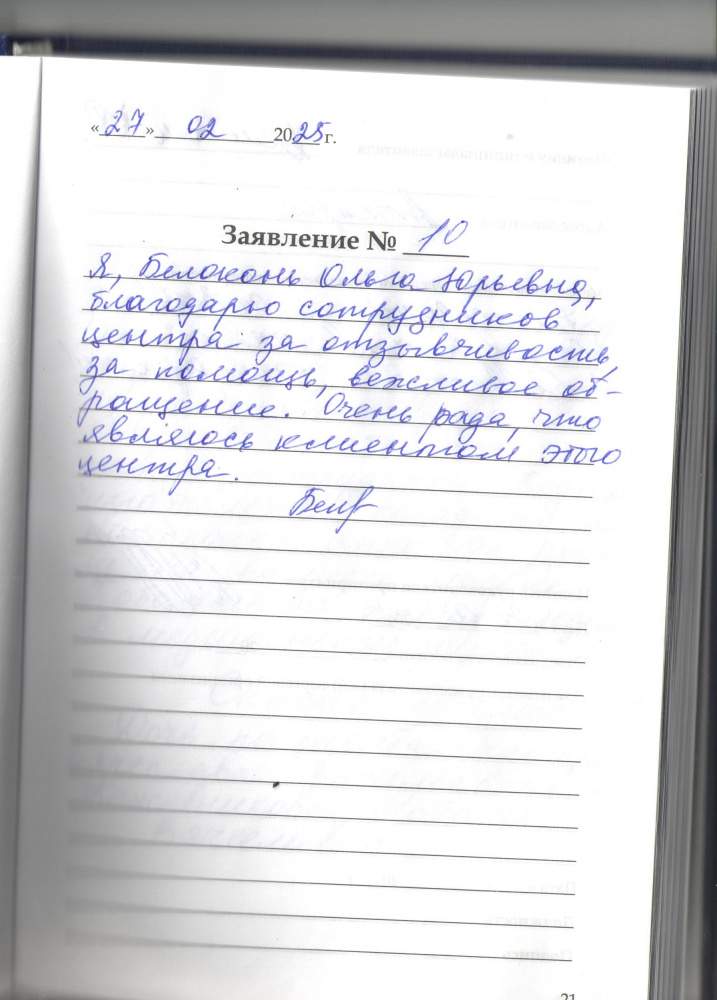 «27» 02 2025 г.
Заявление № 10
Я, Белоконь Ольга Юрьевна,
благодарю сотрудников
центра за отзывчивость,
за помощь, вежливое об-
ращение. Очень рада, что
являюсь клиентом этого
центра.
21